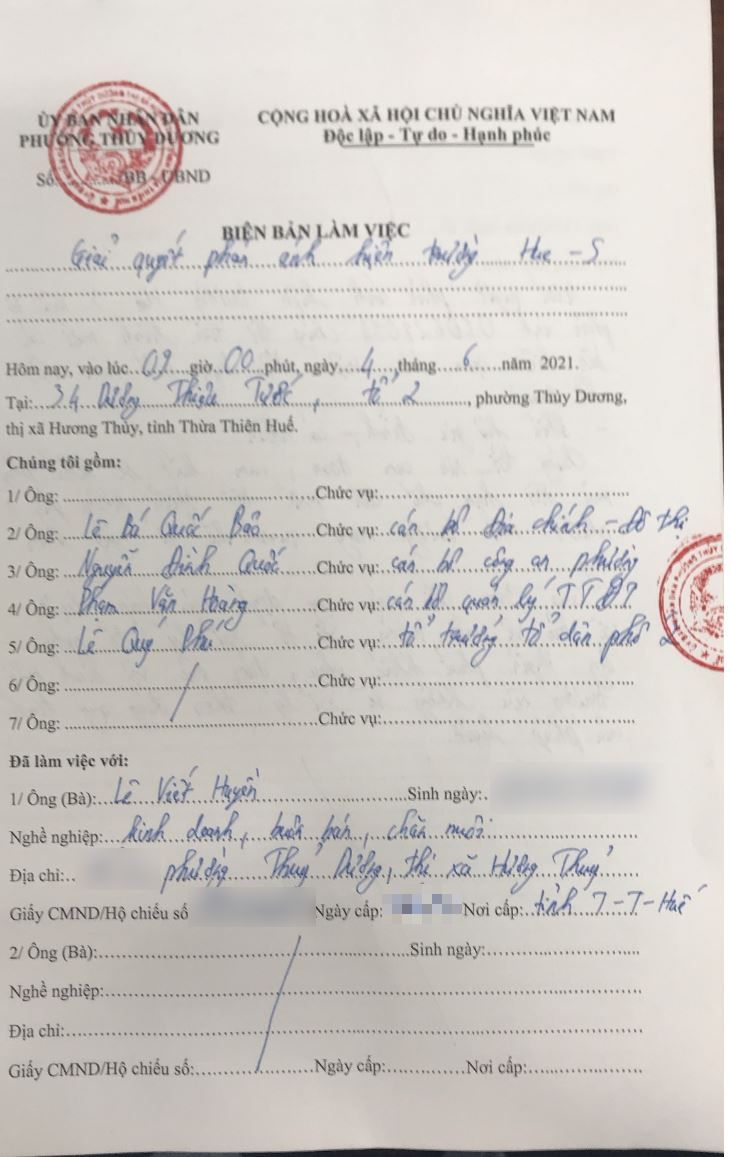 ỦY BAN NHÂN DÂN
PHƯỜNG THỦY DƯƠNG
CỘNG HOÀ XÃ HỘI CHỦ NGHĨA VIỆT NAM
Độc lập - Tự do - Hạnh phúc
Số: BB - UBND
BIÊN BẢN LÀM VIỆC
Giải quyết phản ánh hiện trường Hue - S
Hôm nay, vào lúc 09 giờ 00 phút, ngày 4 tháng 6 năm 2021.
Tại: 34 Dương Thiệu Tước, tổ 2, phường Thủy Dương,
thị xã Hương Thủy, tỉnh Thừa Thiên Huế.
Chúng tôi gồm:
1/ Ông: Chức vụ:
2/ Ông: Lê Bá Quốc Bảo Chức vụ: cán bộ địa chính - đô thị
3/ Ông: Nguyễn Đình Quốc Chức vụ: cán bộ công an phường
4/ Ông: Phạm Văn Hoàng Chức vụ: cán bộ quản lý
5/ Ông: Lê Quý Chức vụ: tổ trưởng tổ dân phố 2
6/ Ông: Chức vụ:
7/ Ông: Chức vụ:
Đã làm việc với:
1/ Ông (Bà): Lê Viết Huyền Sinh ngày:
Nghề nghiệp: kinh doanh, buôn bán, chăn nuôi
Địa chỉ: phường Thuỷ Dương, thị xã Hương Thuỷ
Giấy CMND/Hộ chiếu số Ngày cấp: Nơi cấp: tỉnh T-T-Huế
2/ Ông (Bà): Sinh ngày:
Nghề nghiệp:
Địa chỉ:
Giấy CMND/Hộ chiếu số: Ngày cấp: Nơi cấp: